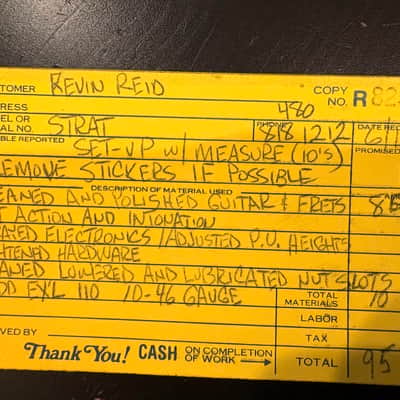 TOMER KEVIN REID COPY
RESS 480 NO. R 82
EL OR STRAT PHONE 818 1212 DATE REC
AL NO.
BLE REPORTED SET-UP w/ MEASURE (10's) PROMISED
EMOVE STICKERS IF POSSIBLE
DESCRIPTION OF MATERIAL USED
EANED AND POLISHED GUITAR & FRETS
T ACTION AND INTONATION
AYED ELECTRONICS / ADJUSTED P.U. HEIGHTS
HTENED HARDWARE
EANED LOWERED AND LUBRICATED NUT SLOTS
DD EX'L 110 10-46 GAUGE TOTAL MATERIALS 10
LABOR
VED BY TAX
Thank You! CASH ON COMPLETION OF WORK TOTAL 95